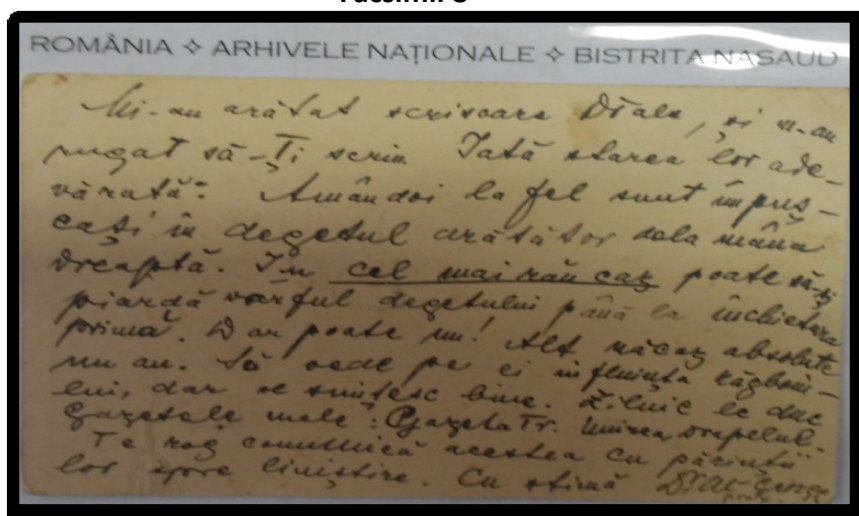 ROMÂNIA ✧ ARHIVELE NAȚIONALE ✧ BISTRITA NASAUD
Mi-au arătat scrisoare Dtale, și m-au
rugat să-Ți scriu. Iată starea lor ade-
vărată: Amândoi la fel sunt împuș-
cați în degetul arătător dela mâna
dreaptă. În cel mai rău caz poate să-și
piardă vârful degetului până la închietura
primă. Dar poate nu! Alt năcaz absolut
nu au. Să vede pe ei influința războiu-
lui, dar se simțesc bine. Zilnic le duc
Gazetele mele: Gazeta Tr. Unirea, Drapelul.
Te rog comunică acestea cu părinții
lor spre liniștire. Cu stimă